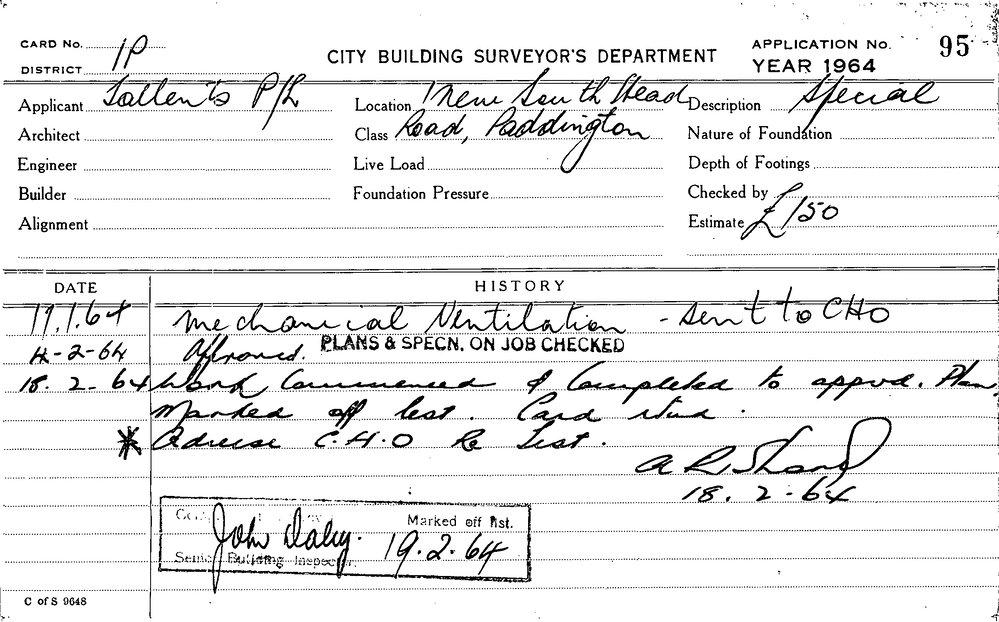 CARD No. 1P
CITY BUILDING SURVEYOR'S DEPARTMENT
APPLICATION No. 95
DISTRICT
YEAR 1964
Applicant Sallents P/L
Location 1 New South Head
Description Special
Architect
Class Road, Paddington
Nature of Foundation
Engineer
Live Load
Depth of Footings
Builder
Foundation Pressure
Checked by
Alignment
Estimate £150
DATE
HISTORY
17.1.64 Mechanical Ventilation - sent to CHO
4-2-64 Approved. PLANS & SPECN. ON JOB CHECKED
18.2-64 Work Commenced & Completed to appvd. Plan
Marked off list. Card
* Advise C.H.O Re Test.
18.2-64
John Daley. Marked off list.
Senior Building Inspector. 19.2.64
C of S 9648